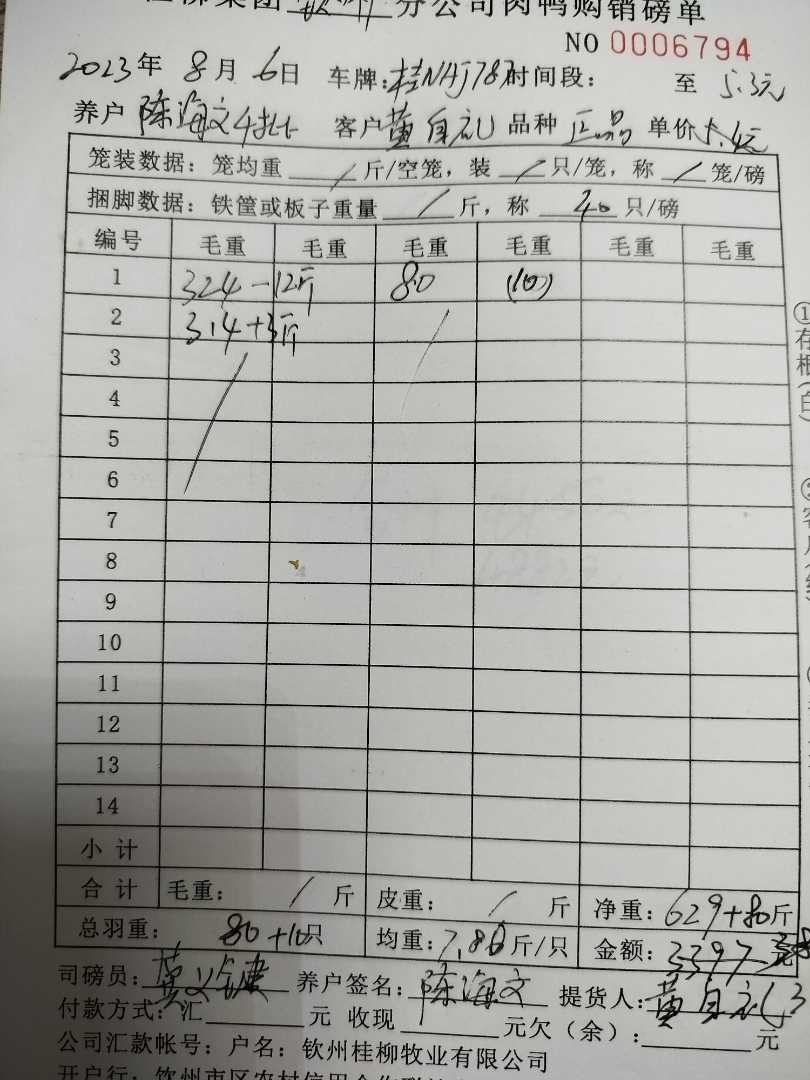 集团 钦州 分公司肉鸭购销磅单
NO 0006794
2023年 8月 6日 车牌:桂NHJ787 时间段: 至 5.3元
养户 陈海文4批 客户黄自礼 品种 正品 单价5.4元
笼装数据: 笼均重 / 斤/空笼, 装 / 只/笼, 称 / 笼/磅
捆脚数据: 铁筐或板子重量 / 斤, 称 40 只/磅
编号 毛重 毛重 毛重 毛重 毛重 毛重
1 324-12斤 80 (10)
2 314+3斤 /
3 /
4
5
6
7
8
9
10
11
12
13
14
小计
合计 毛重: / 斤 皮重: / 斤 净重: 629+80斤
总羽重: 80+10只 均重: 7.86斤/只 金额: 3397
司磅员: 养户签名: 陈海文 提货人: 黄自礼
付款方式: 汇 元 收现 元欠(余): 元
公司汇款帐号: 户名: 钦州桂柳牧业有限公司
开户行: 钦州市区农村信用合作联社
①存根(白)